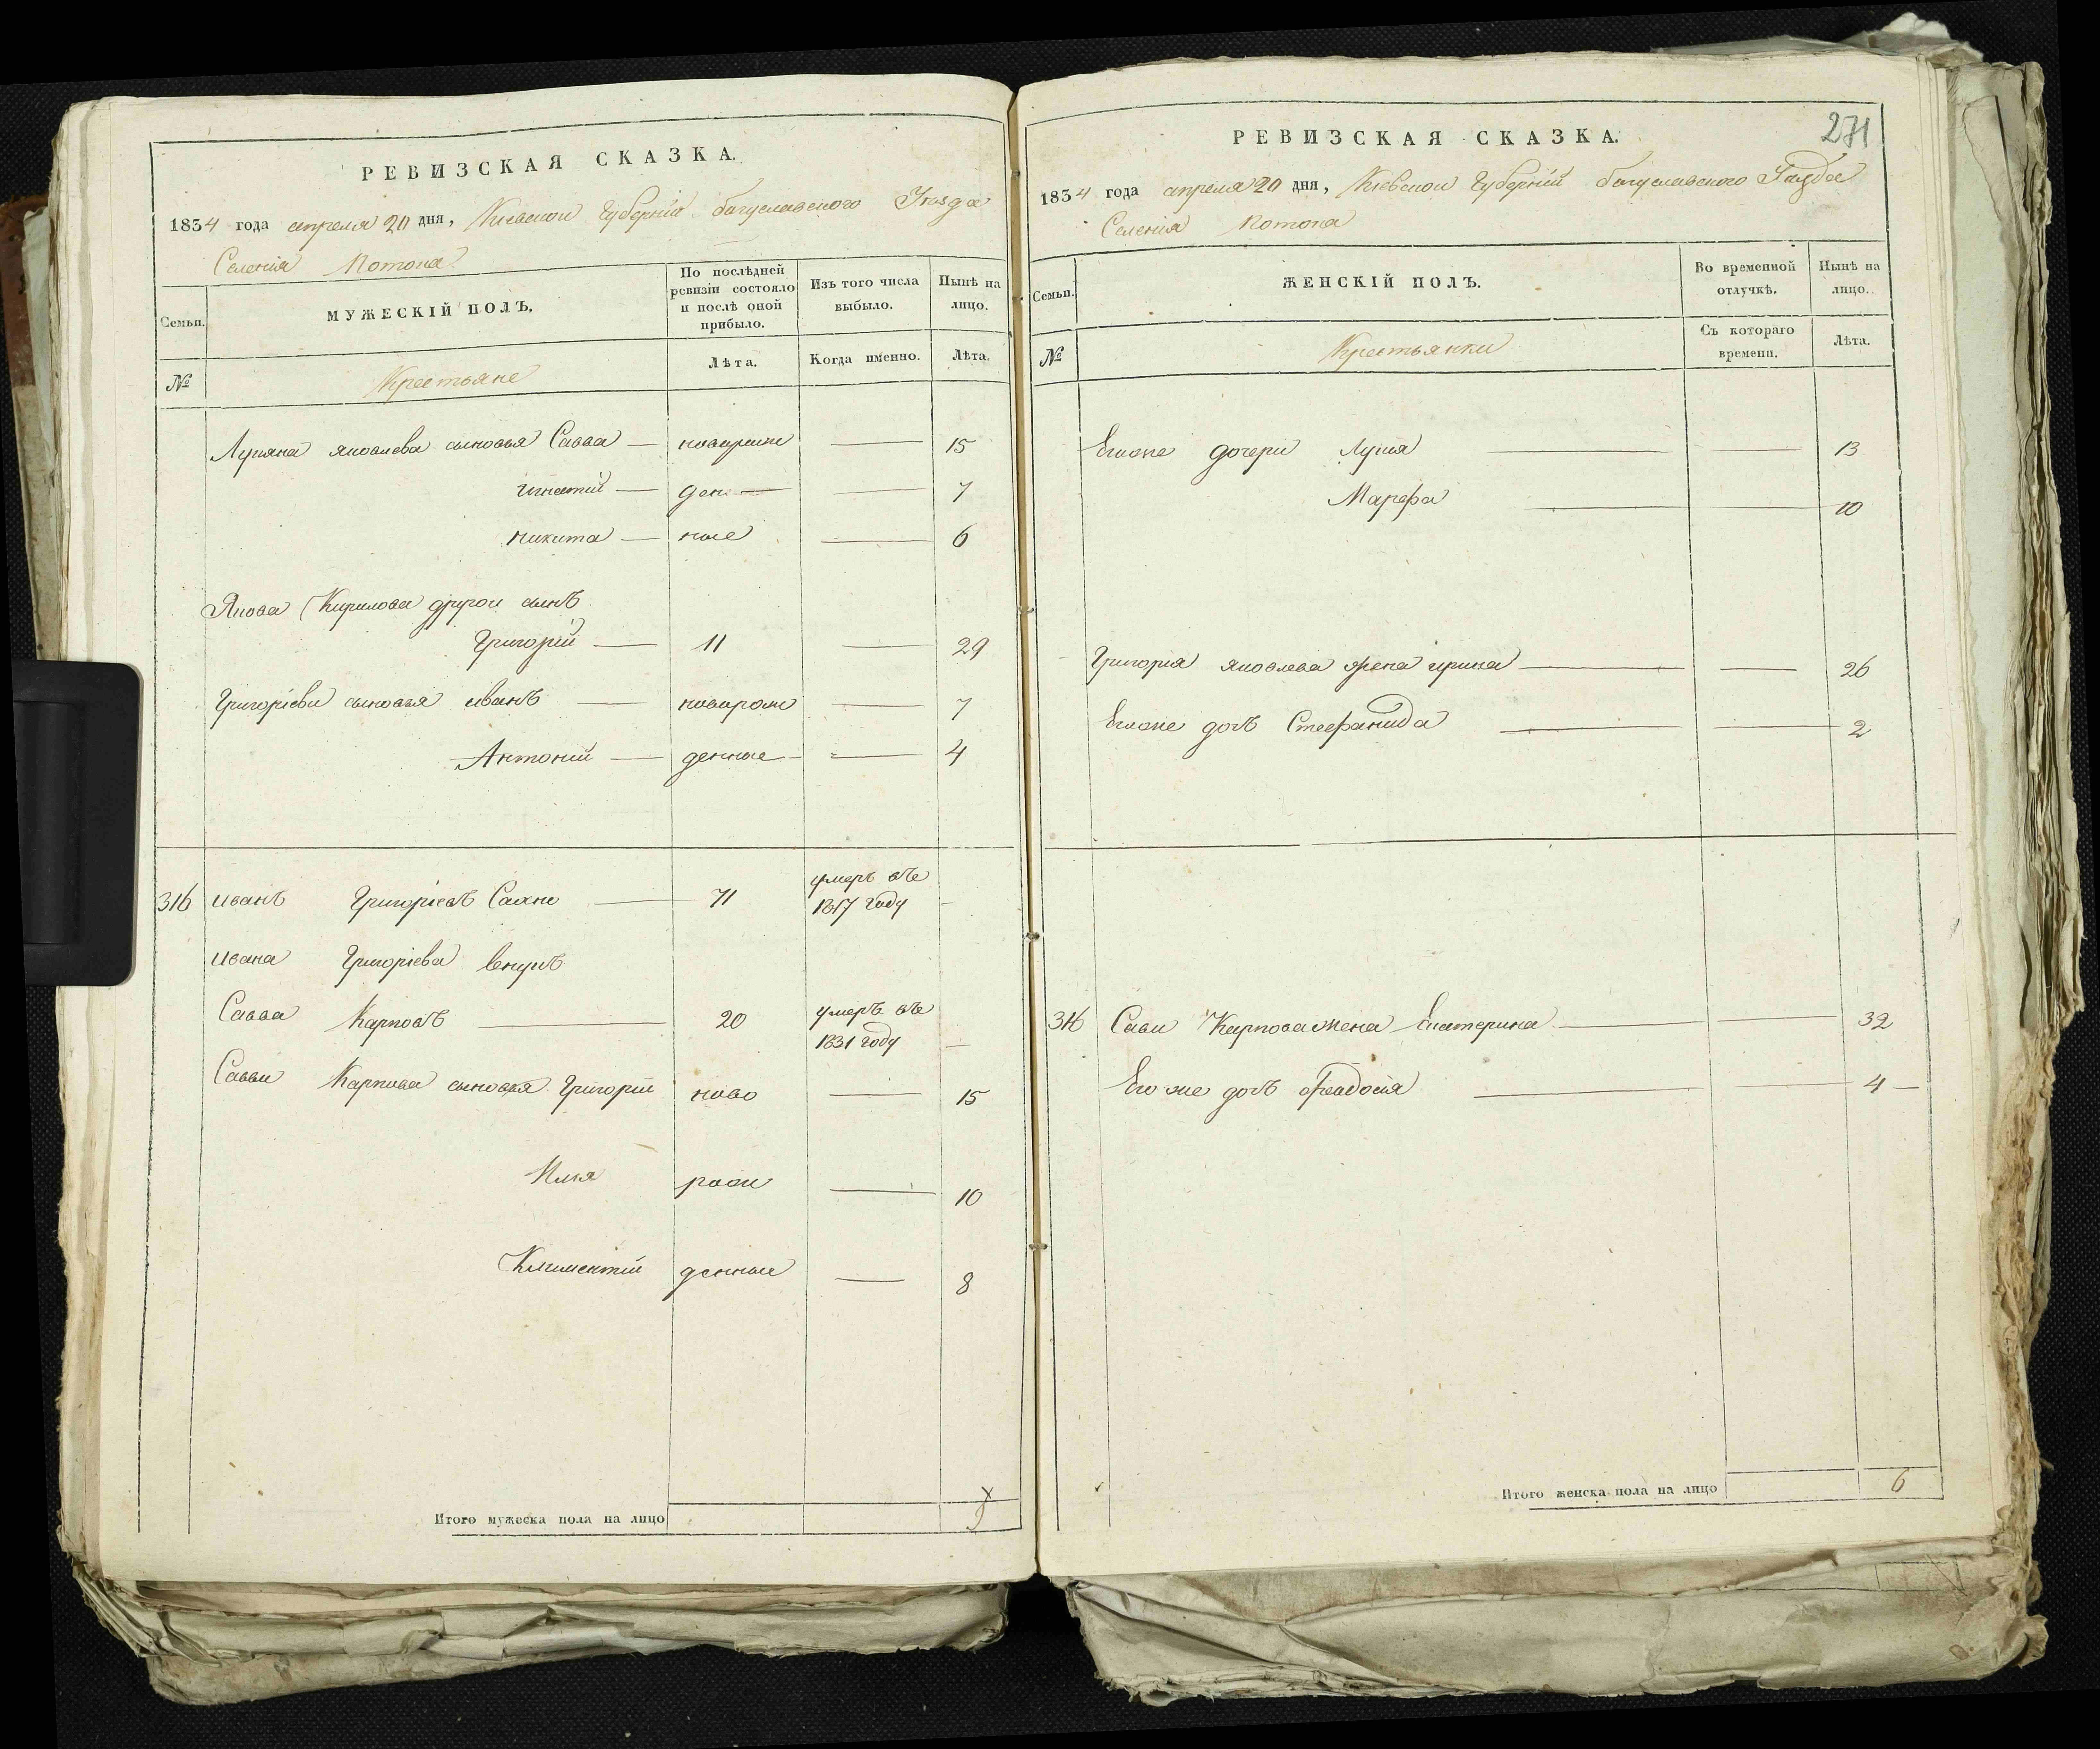 РЕВИЗСКАЯ СКАЗКА.
1834 года апреля 20 дня, Кіевской Губерніи богуславского Уезда
Селенія Потока
Семьи.
МУЖЕСКІЙ ПОЛЪ.
По послѣдней ревизіи состояло и послѣ оной прибыло.
Изъ того числа выбыло.
Нынѣ на лицо.
№
Крестьяне
Лѣта.
Когда именно.
Лѣта.
Лукяна яковлева сыновья Савва — новорож — 15
игнатий — ден — 7
никита — ные — 6
Якова Кирилова другой сынъ
Григорій — 11 — 29
Григоріеви сыновья иванъ — новорож — 7
Антоній — денные — 4
316 иванъ Григоріевъ Сахно — 71 умеръ въ 1817 году —
ивана Григоріева внукъ
Савва Карповъ — 20 умеръ въ 1831 году —
Саввы Карпова сыновья Григорій ново — 15
Илья рож — 10
Климентій денные — 8
Итого мужеска пола на лицо
РЕВИЗСКАЯ СКАЗКА.
271
1834 года апреля 20 дня, Кіевской Губерній богуславского Уезда
Селенія Потока
Семьи.
ЖЕНСКІЙ ПОЛЪ.
Во временной отлучкѣ.
Нынѣ на лицо.
№
Крестьянки
Съ котораго времени.
Лѣта.
Егоже дочери Лукия — — 13
Марфа — — 10
Григорія яковлева жена ирина — — 26
Егоже дочъ Стефанида — — 2
316 Савы Карпова жена Екатерина — — 32
Его же дочъ Феодосія — — 4 —
Итого женска пола на лицо 6